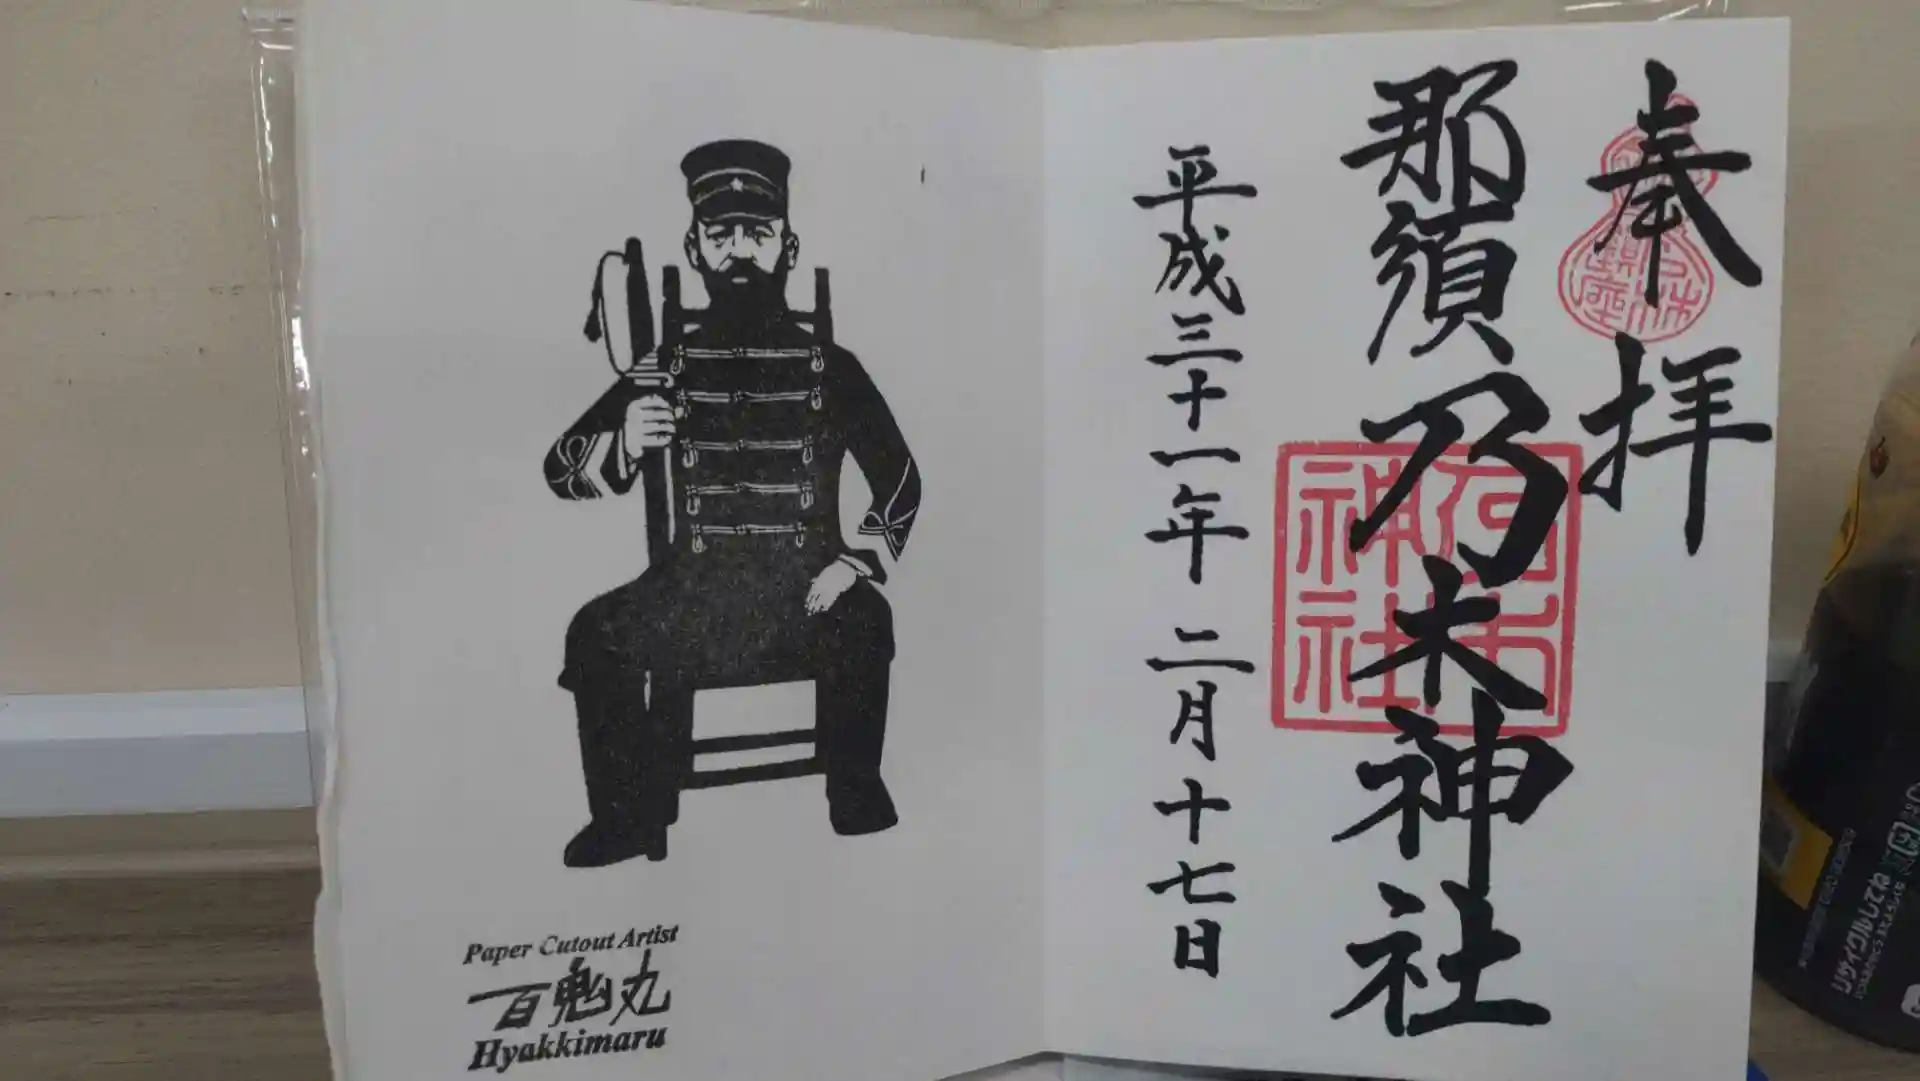 奉拝
那須乃木神社
平成三十一年 二月十七日
乃木
神社
Paper Cutout Artist
百鬼丸
Hyakkimaru
リサイクルしてね